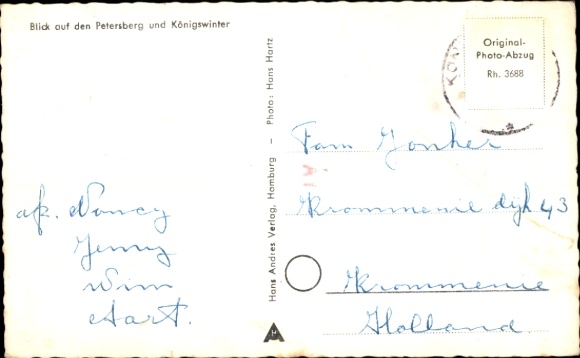 Blick auf den Petersberg und Königswinter
Original-
Photo-Abzug
Rh. 3688
KÖN
Hans Andres Verlag, Hamburg – Photo: Hans Hartz
Fam Jonker
Krommenie dyk 43
Krommenie
Holland
afz. Nancy
Jenny
Wim
Aart.